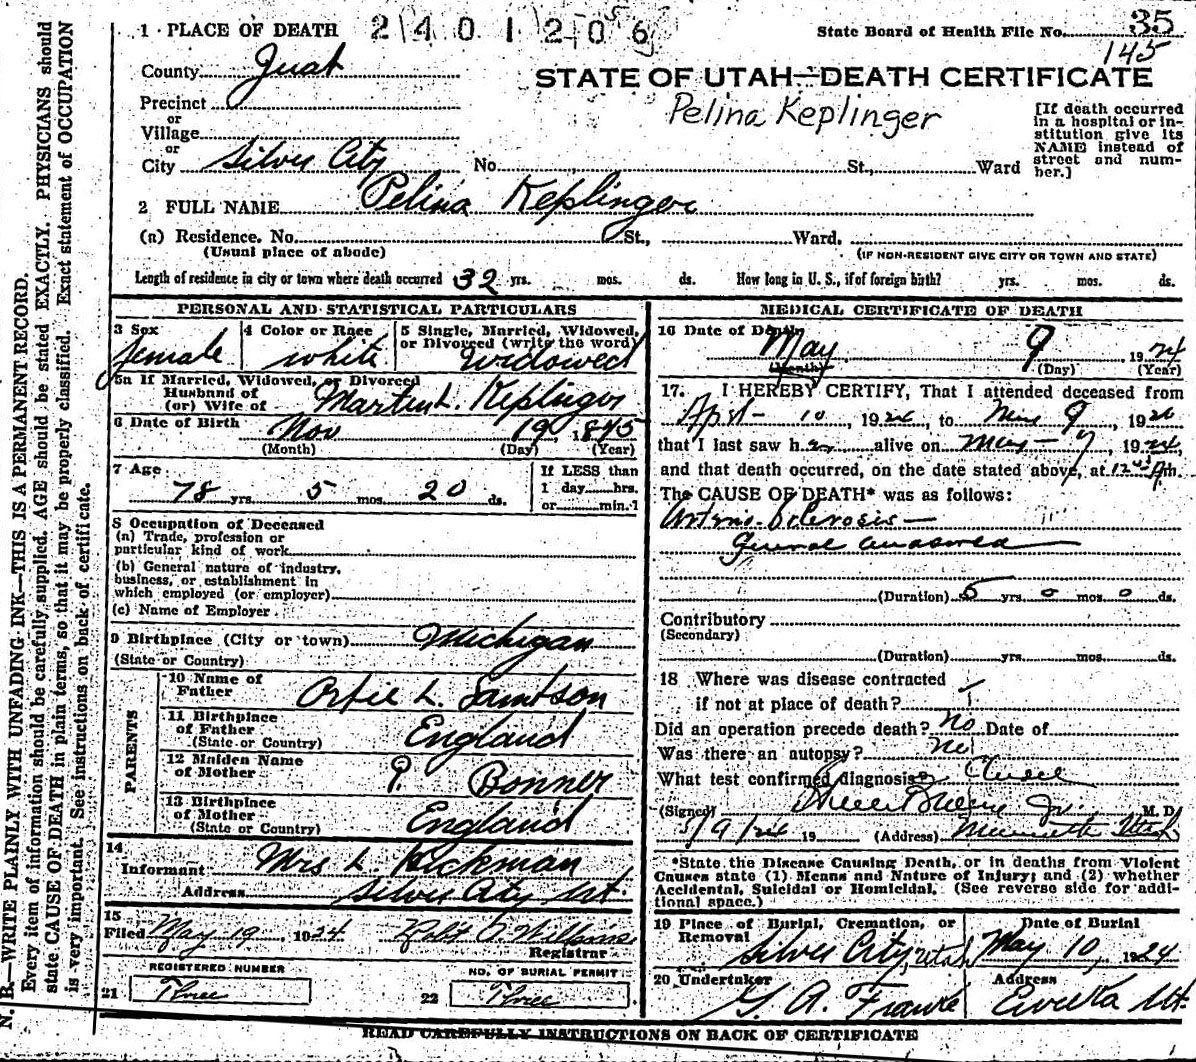 N. B.—WRITE PLAINLY WITH UNFADING INK—THIS IS A PERMANENT RECORD.
Every item of information should be carefully supplied. AGE should be stated EXACTLY. PHYSICIANS should
state CAUSE OF DEATH in plain terms, so that it may be properly classified. Exact statement of OCCUPATION
is very important. See instructions on back of certificate.
1 PLACE OF DEATH 2401206 State Board of Health File No. 35
145
County Juab
STATE OF UTAH—DEATH CERTIFICATE
Precinct
or
Village
or
City Silver City No. St., Ward
Pelina Keplinger
[If death occurred
in a hospital or in-
stitution give its
NAME instead of
street and num-
ber.]
2 FULL NAME Pelina Keplinger
(a) Residence. No. St., Ward,
(Usual place of abode) (IF NON-RESIDENT GIVE CITY OR TOWN AND STATE)
Length of residence in city or town where death occurred 32 yrs. mos. ds. How long in U. S., if of foreign birth? yrs. mos. ds.
PERSONAL AND STATISTICAL PARTICULARS
3 Sex 4 Color or Race 5 Single, Married, Widowed,
or Divorced (write the word)
female white Widowed
5a If Married, Widowed, or Divorced
Husband of
(or) Wife of Martin L. Keplinger
6 Date of Birth Nov 19, 1845
(Month) (Day) (Year)
7 Age If LESS than
78 yrs. 5 mos. 20 ds. 1 day hrs.
or min.?
8 Occupation of Deceased
(a) Trade, profession or
particular kind of work
(b) General nature of industry,
business, or establishment in
which employed (or employer)
(c) Name of Employer
9 Birthplace (City or town) Michigan
(State or Country)
PARENTS
10 Name of
Father L.
11 Birthplace
of Father England
(State or Country)
12 Maiden Name
of Mother P. Bonner
13 Birthplace
of Mother England
(State or Country)
14
Informant Mrs L. Hickman
Address Silver City Ut.
15
Filed May 19, 1924
Registrar
REGISTERED NUMBER NO. OF BURIAL PERMIT
21 Three 22 Three
MEDICAL CERTIFICATE OF DEATH
16 Date of Death
May 9 1924
(Month) (Day) (Year)
17. I HEREBY CERTIFY, That I attended deceased from
10, 1924, to 9 19
that I last saw h alive on May 1924,
and that death occurred, on the date stated above, at m.
The CAUSE OF DEATH* was as follows:
Arterio-Sclerosis—
General anasarca
(Duration) 5 yrs. 0 mos. 0 ds.
Contributory
(Secondary)
(Duration) yrs. mos. ds.
18 Where was disease contracted
if not at place of death?
Did an operation precede death? No Date of
Was there an autopsy? No
What test confirmed diagnosis?
(Signed) Jr. M. D.
5/9/24 19 (Address) Utah
*State the Disease Causing Death, or in deaths from Violent
Causes state (1) Means and Nature of Injury; and (2) whether
Accidental, Suicidal or Homicidal. (See reverse side for addi-
tional space.)
19 Place of Burial, Cremation, or Date of Burial
Removal
Silver City, Utah May 10, 1924
20 Undertaker Address
G. A. Franke Eureka Ut.
READ CAREFULLY INSTRUCTIONS ON BACK OF CERTIFICATE